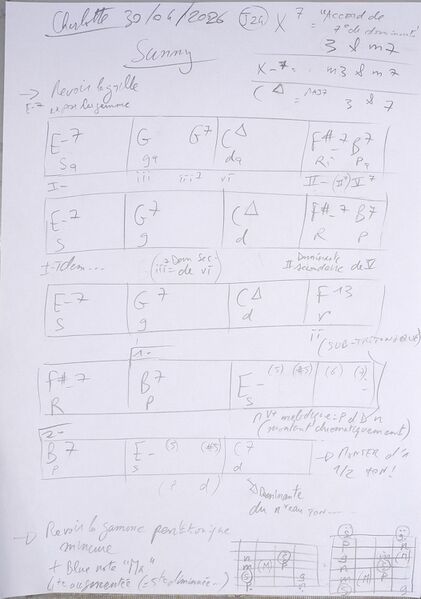 Charlotte 30/04/2026 J24 X7 = "Accord de
7e de dominante"
3 & m7
Sunny
X-7 = m3 & m7
→ Revoir la grille
CΔ MAJ7 3 & 7
E-7 la gamme
E-7 G G7 CΔ F#-7 B7
Sa ga da Ri Pa
I- iii iii7 vi II- V7
E-7 G7 CΔ F#-7 B7
S g d R P
I- Idem... iii7 = Dom Sec de vi II Dominante secondaire de V
E-7 G7 CΔ F13
S g d r
ii (SUB-TRITONIQUE)
1-
F#-7 B7 E- (5) (#5) (6) (7)
R P S
mélodique: P d D n
(montant chromatiquement)
2-
B7 E- (5) (#5) C7 → MONTER d'1
P S d 1/2 TON!
Dominante
du nveau ton...
→ Revoir la gamme pentatonique
mineure
+ Blue note "Ma"
4te augmentée (= 5te diminuée...)